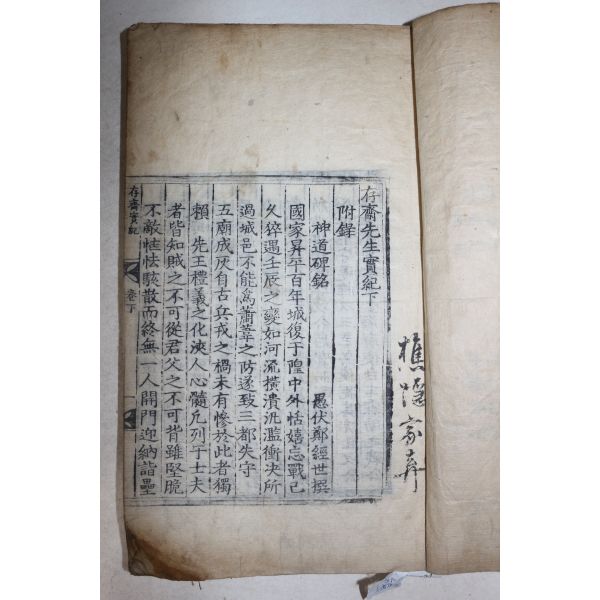 存齋先生實紀下
附錄
神道碑銘 愚伏鄭經世撰
國家昇平百年城復于隍中外恬嬉忘戰已
久猝遇壬辰之變如河流橫潰汎濫衝決所
過城邑不能爲蕭葦之防遂致三都失守
五廟成灰自古兵戎之禍未有慘於此者獨
賴 先王禮義之化浹人心髓凡列于士夫
者皆知賊之不可從君父之不可背雖堅脆
不敵恇怯駭散而終無一人開門迎納詣壘
存齋實紀 卷下 一
樵隱家弆